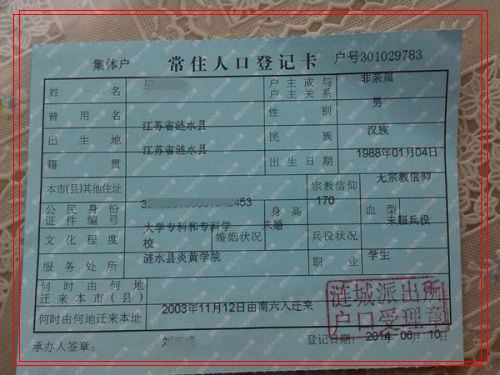 集体户 常住人口登记卡 户号301029783
姓名 户主或与户主关系 非亲属
曾用名 性别 男
出生地 江苏省涟水县 民族 汉族
籍贯 江苏省涟水县 出生日期 1988年01月04日
本市(县)其他住址 宗教信仰 无宗教信仰
公民身份证件编号 3 453 身高 170 血型
文化程度 大学专科和专科学校 婚姻状况 未婚 兵役状况 未服兵役
服务处所 涟水县炎黄学院 职业 学生
何时由何地迁来本市(县)
何时由何地迁来本址 2003年11月12日由南六入迁来
承办人签章: 登记日期: 2014 06月 10日
涟城派出所
户口受理章